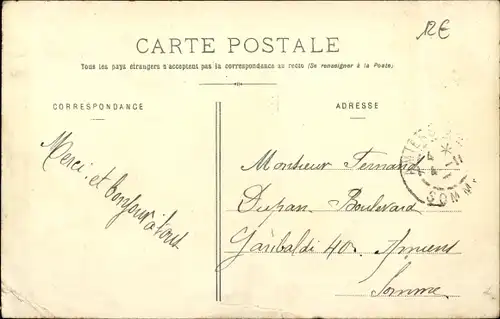 12€
CARTE POSTALE
Tous les pays étrangers n'acceptent pas la correspondance au recto (Se renseigner à la Poste)
CORRESPONDANCE
ADRESSE
Merci et bonjour à tous
Monsieur Fernand
Dupan. Boulevard
Garibaldi 40. Amiens
Somme.
4
4 - 11
SOMME